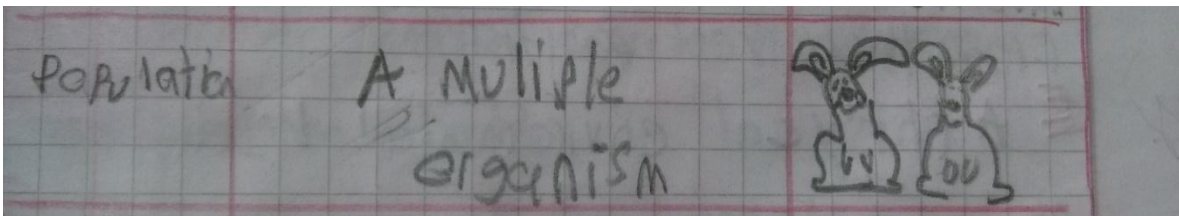 Populatio A Muliple
organism